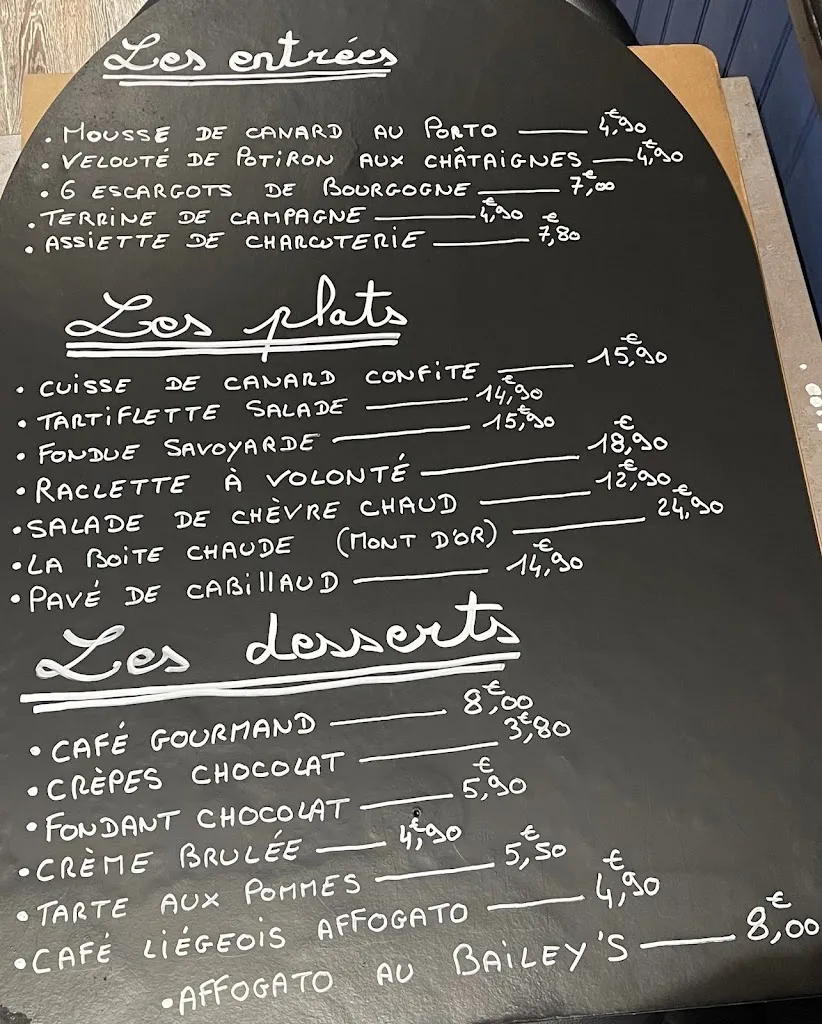 Les entrées
• MOUSSE DE CANARD AU PORTO — 4,€90
• VELOUTÉ DE POTIRON AUX CHÂTAIGNES — 4,€90
• 6 ESCARGOTS DE BOURGOGNE — 7,€00
• TERRINE DE CAMPAGNE — 4,€90
• ASSIETTE DE CHARCUTERIE — 7,€80
Les plats
• CUISSE DE CANARD CONFITE — 15,€90
• TARTIFLETTE SALADE — 14,€90
• FONDUE SAVOYARDE — 15,€90
• RACLETTE À VOLONTÉ — 18,€90
• SALADE DE CHÈVRE CHAUD — 12,€90
• LA BOITE CHAUDE (MONT D'OR) — 24,€90
• PAVÉ DE CABILLAUD — 14,€90
Les desserts
• CAFÉ GOURMAND — 8,€00
• CRÈPES CHOCOLAT — 3,€80
• FONDANT CHOCOLAT — 5,€90
• CRÈME BRULÉE — 4,€90
• TARTE AUX POMMES — 5,€50
• CAFÉ LIÉGEOIS AFFOGATO — 4,€90
• AFFOGATO AU BAILEY'S — 8,€00